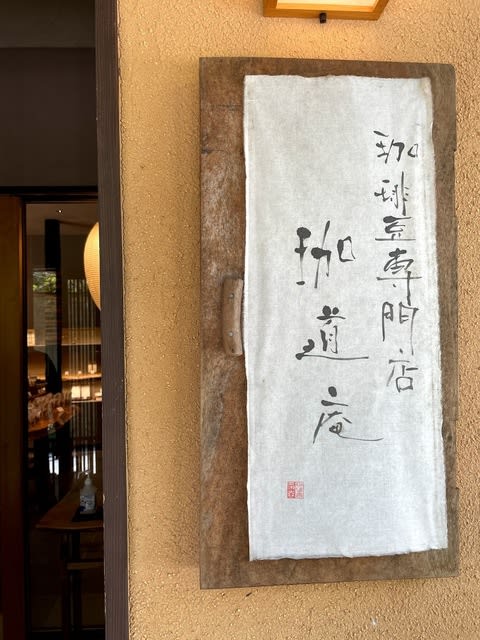 珈琲豆専門店
珈道庵